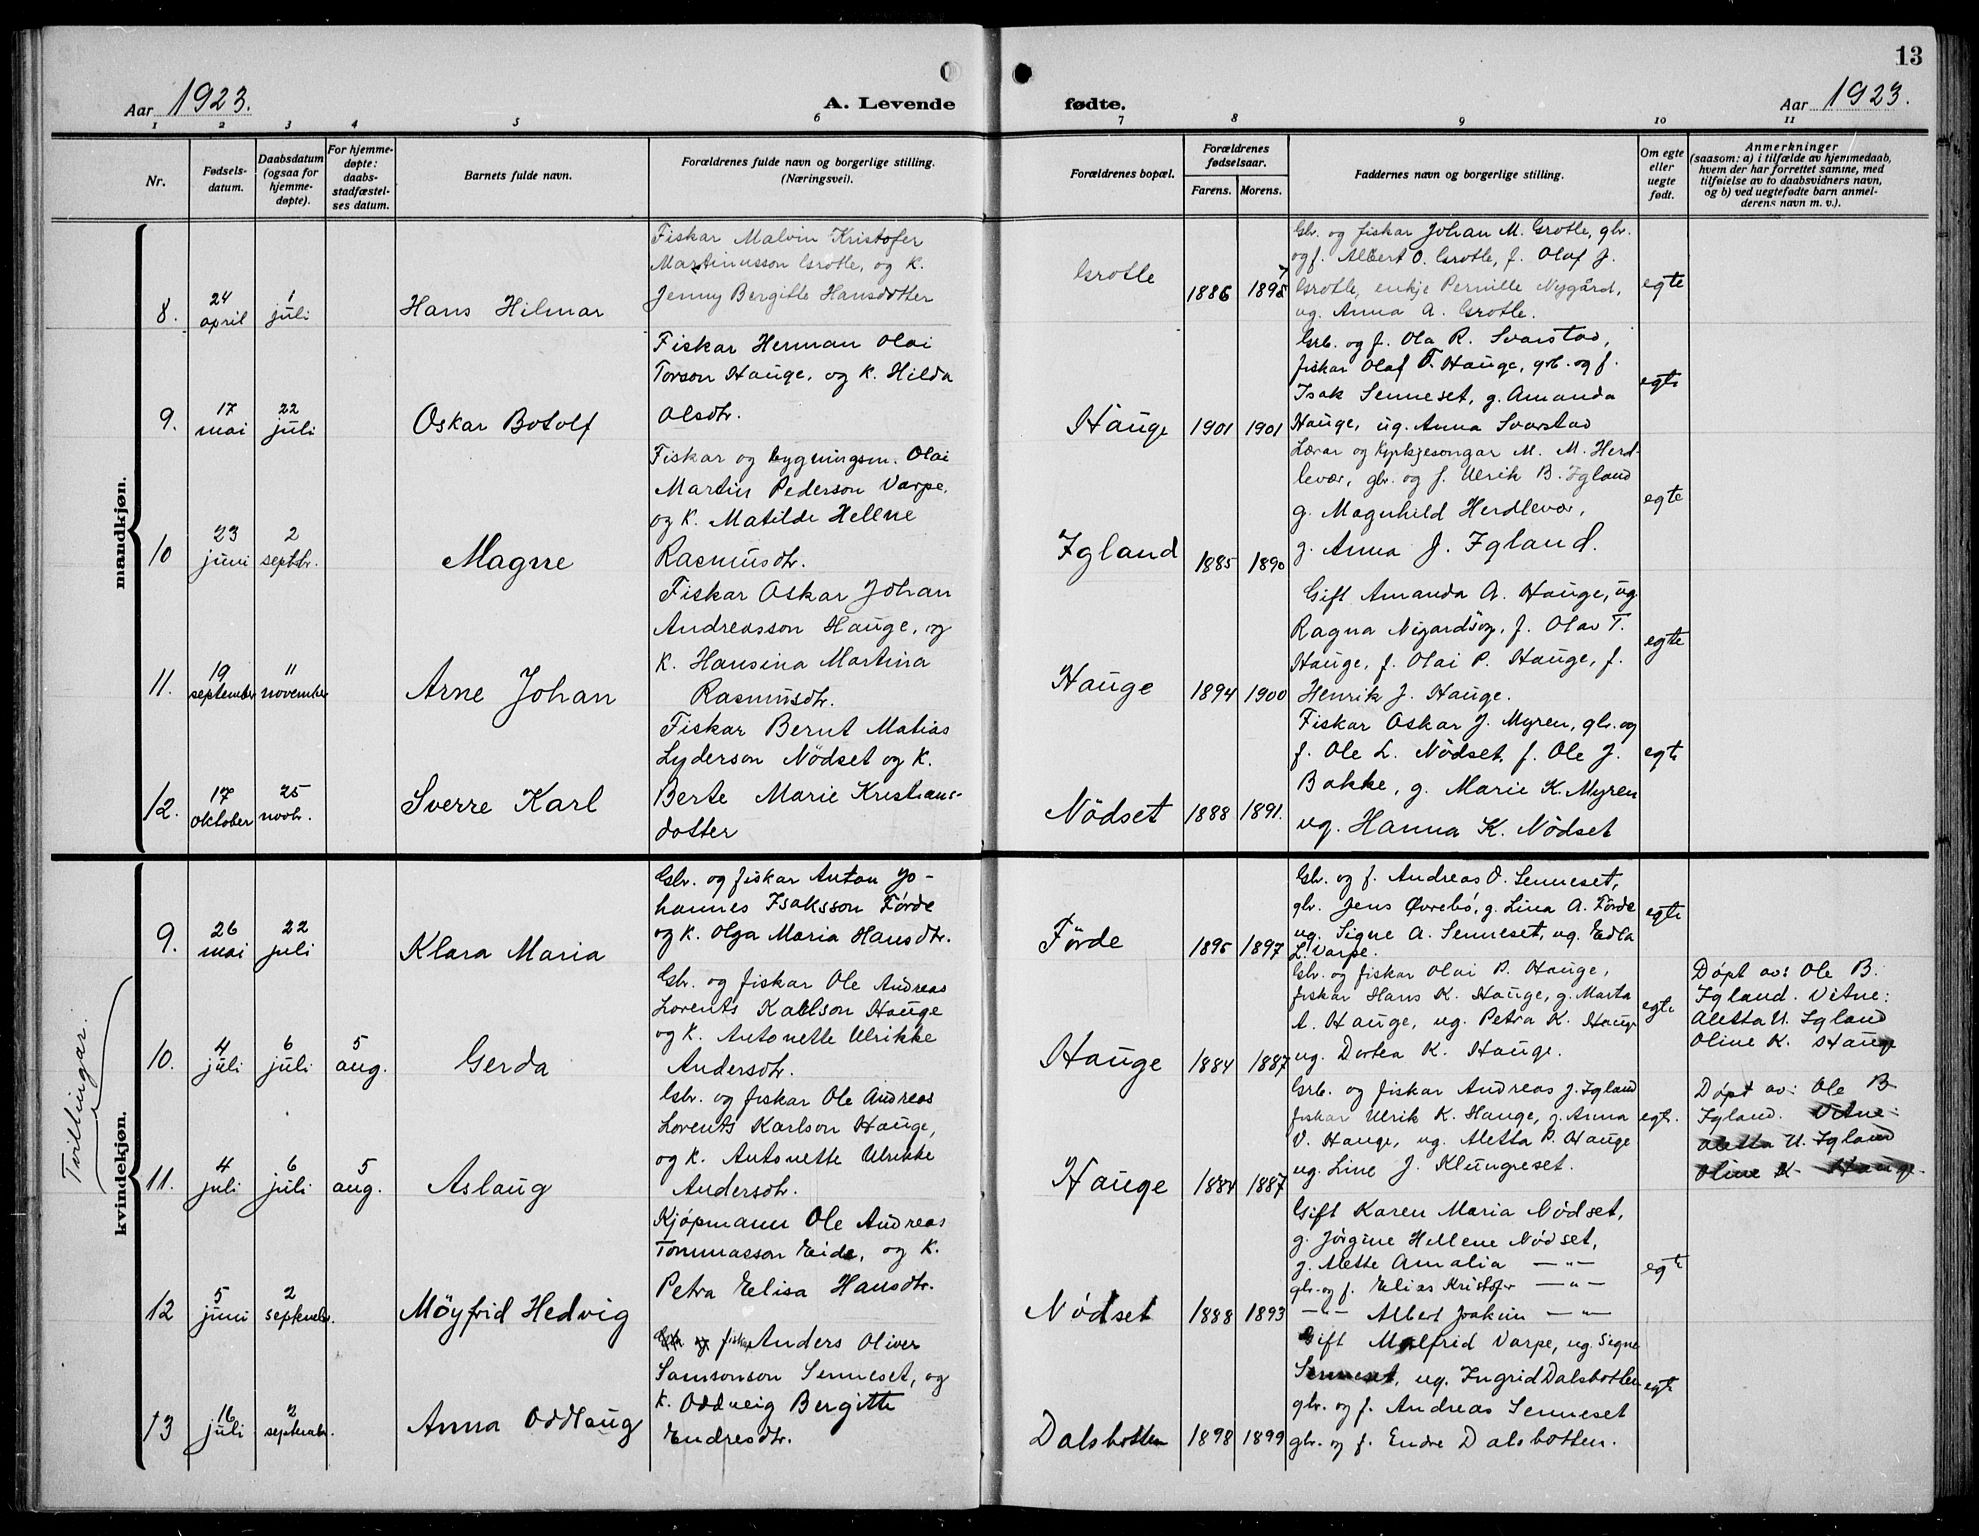 13
Aar 1923.
A. Levende
fødte.
Aar 1923.
1 2 3 4 5 6 7 8 9 10 11
Nr.
Fødsels-
datum.
Daabsdatum
(ogsaa for
hjemme-
døpte).
For hjemme-
døpte:
daabs-
stadfæstel-
ses datum.
Barnets fulde navn.
Forældrenes fulde navn og borgerlige stilling.
(Næringsvei).
Forældrenes bopæl.
Forældrenes
fødselsaar.
Farens. Morens.
Faddernes navn og borgerlige stilling.
Om egte
eller
uegte
født.
Anmerkninger
(saasom: a) i tilfælde av hjemmedaab,
hvem der har forrettet samme, med
tilføielse av to daabsvidners navn,
og b) ved uegtefødte barn anmel-
derens navn m. v.).
mandkjøn.
8.
24
april
1
juli
Hans Hilmar
Fiskar Malvin Kristofer
Martinusson Grotle, og k.
Jenny Bergitte Hansdotter
Grotle
1886
Gbr. og fiskar Johan M. Grotle, gbr.
og f. Albert O. Grotle, f. Olaf J.
Grotle, enkje Pernille Nygård,
ug. Anna A. Grotle.
egte
9.
17
mai
22
juli
Oskar Botolf
Fiskar Herman Olai
Torson Hauge, og k. Hilda
Olsdtr.
Hauge
1901
1901
Grb. og f. Ola R. Svarstad,
fiskar Olaf T. Hauge, grb. og f.
Isak Senneset, g. Amanda
Hauge, ug. Anna Svarstad
egte
10
23
juni
2
septbr.
Magne
Fiskar og bygningsm. Olai
Martin Pederson Varpe,
og k. Matilde Hellne
Rasmusdtr.
Igland
1885
1890
Lærar og Kyrkjesongar M. M. Herd-
levær, gbr. og f. Ulrik B. Igland
g. Magnhild Herdlevær,
g. Anna J. Igland.
egte
11.
19
september
11
november
Arne Johan
Fiskar Oskar Johan
Andreasson Hauge, og
k. Hansina Martina
Rasmusdtr.
Hauge
1894
1900
Gift Amanda A. Hauge, ug.
Ragna Nigardsøy, f. Olav T.
Hauge, f. Olai P. Hauge, f.
Henrik J. Hauge.
egte
12.
17
oktober
25
novbr.
Sverre Karl
Fiskar Bernt Matias
Lyderson Nödset og k.
Berte Marie Kristians-
dotter
Nödset
1888
1891.
Fiskar Oskar J. Myren, gbr. og
f. Ole L. Nödset, f. Ole J.
Bakke, g. Marie K. Myren
ug. Hanna K. Nödset
egte
kvindekjøn.
Tvillingar.
9.
26
mai
22
juli
Klara Maria
Gbr. og fiskar Anton Jo-
hannes Isaksson Förde
og k. Olga Maria Hansdtr.
Förde
1895
1897
Gbr. og f. Andreas O. Senneset,
gbr. Jens Øvrebö, g. Lina A. Förde
ug. Signe A. Senneset, ug. Edla
L. Varpe.
egte
10.
4
juli
6
juli
5
aug.
Gerda
Gbr. og fiskar Ole Andreas
Lorents Karlson Hauge
og k. Antonette Ulrikke
Andersdtr.
Hauge
1884
1887
Gbr. og fiskar Olai P. Hauge,
fiskar Hans K. Hauge, g. Marta
A. Hauge, ug. Petra K. Hauge
ug. Dortea K. Hauge.
egte
Døpt av: Ole B.
Igland. Vitne:
Aletta U. Igland
Oline K. Hauge
11.
4
juli
6
juli
5
aug.
Aslaug
Gbr. og fiskar Ole Andreas
Lorents Karlson Hauge,
og k. Antonette Ulrikke
Andersdtr.
Hauge
1884
1887
Grb. og fiskar Andreas J. Igland
fiskar Ulrik K. Hauge, g. Anna
V. Hauge, ug. Aletta P. Hauge
ug. Line J. Klungreset.
egt.
Døpt av: Ole B
Igland. Vitne:
Aletta U. Igland
Oline K Hauge.
12
5
juni
2
septembr.
Möyfrid Hedvig
Kjøpmann Ole Andreas
Tommasson Eide, og k.
Petra Elisa Hansdtr.
Nödset
1888
1893
Gift Karen Maria Nödset,
g. Jörgine Hellene Nödset,
g. Alette Amalia —"—
gbr. og f. Elias Kristofer —"—
—"— Albert Joakim —"—
egte
13
16
juli
2
septembr.
Anna Oddlaug
Gbr. og fiskar Anders Oliver
Samsonson Senneset, og
k. Oddveig Bergitte
Endresdtr.
Dalsbotten
1898
1899
Gift Målfrid Varpe, ug. Signe
Senneset, ug. Ingrid Dalsbotten
gbr. og f. Andreas Senneset
gbr. og f. Endre Dalsbotten.
egte